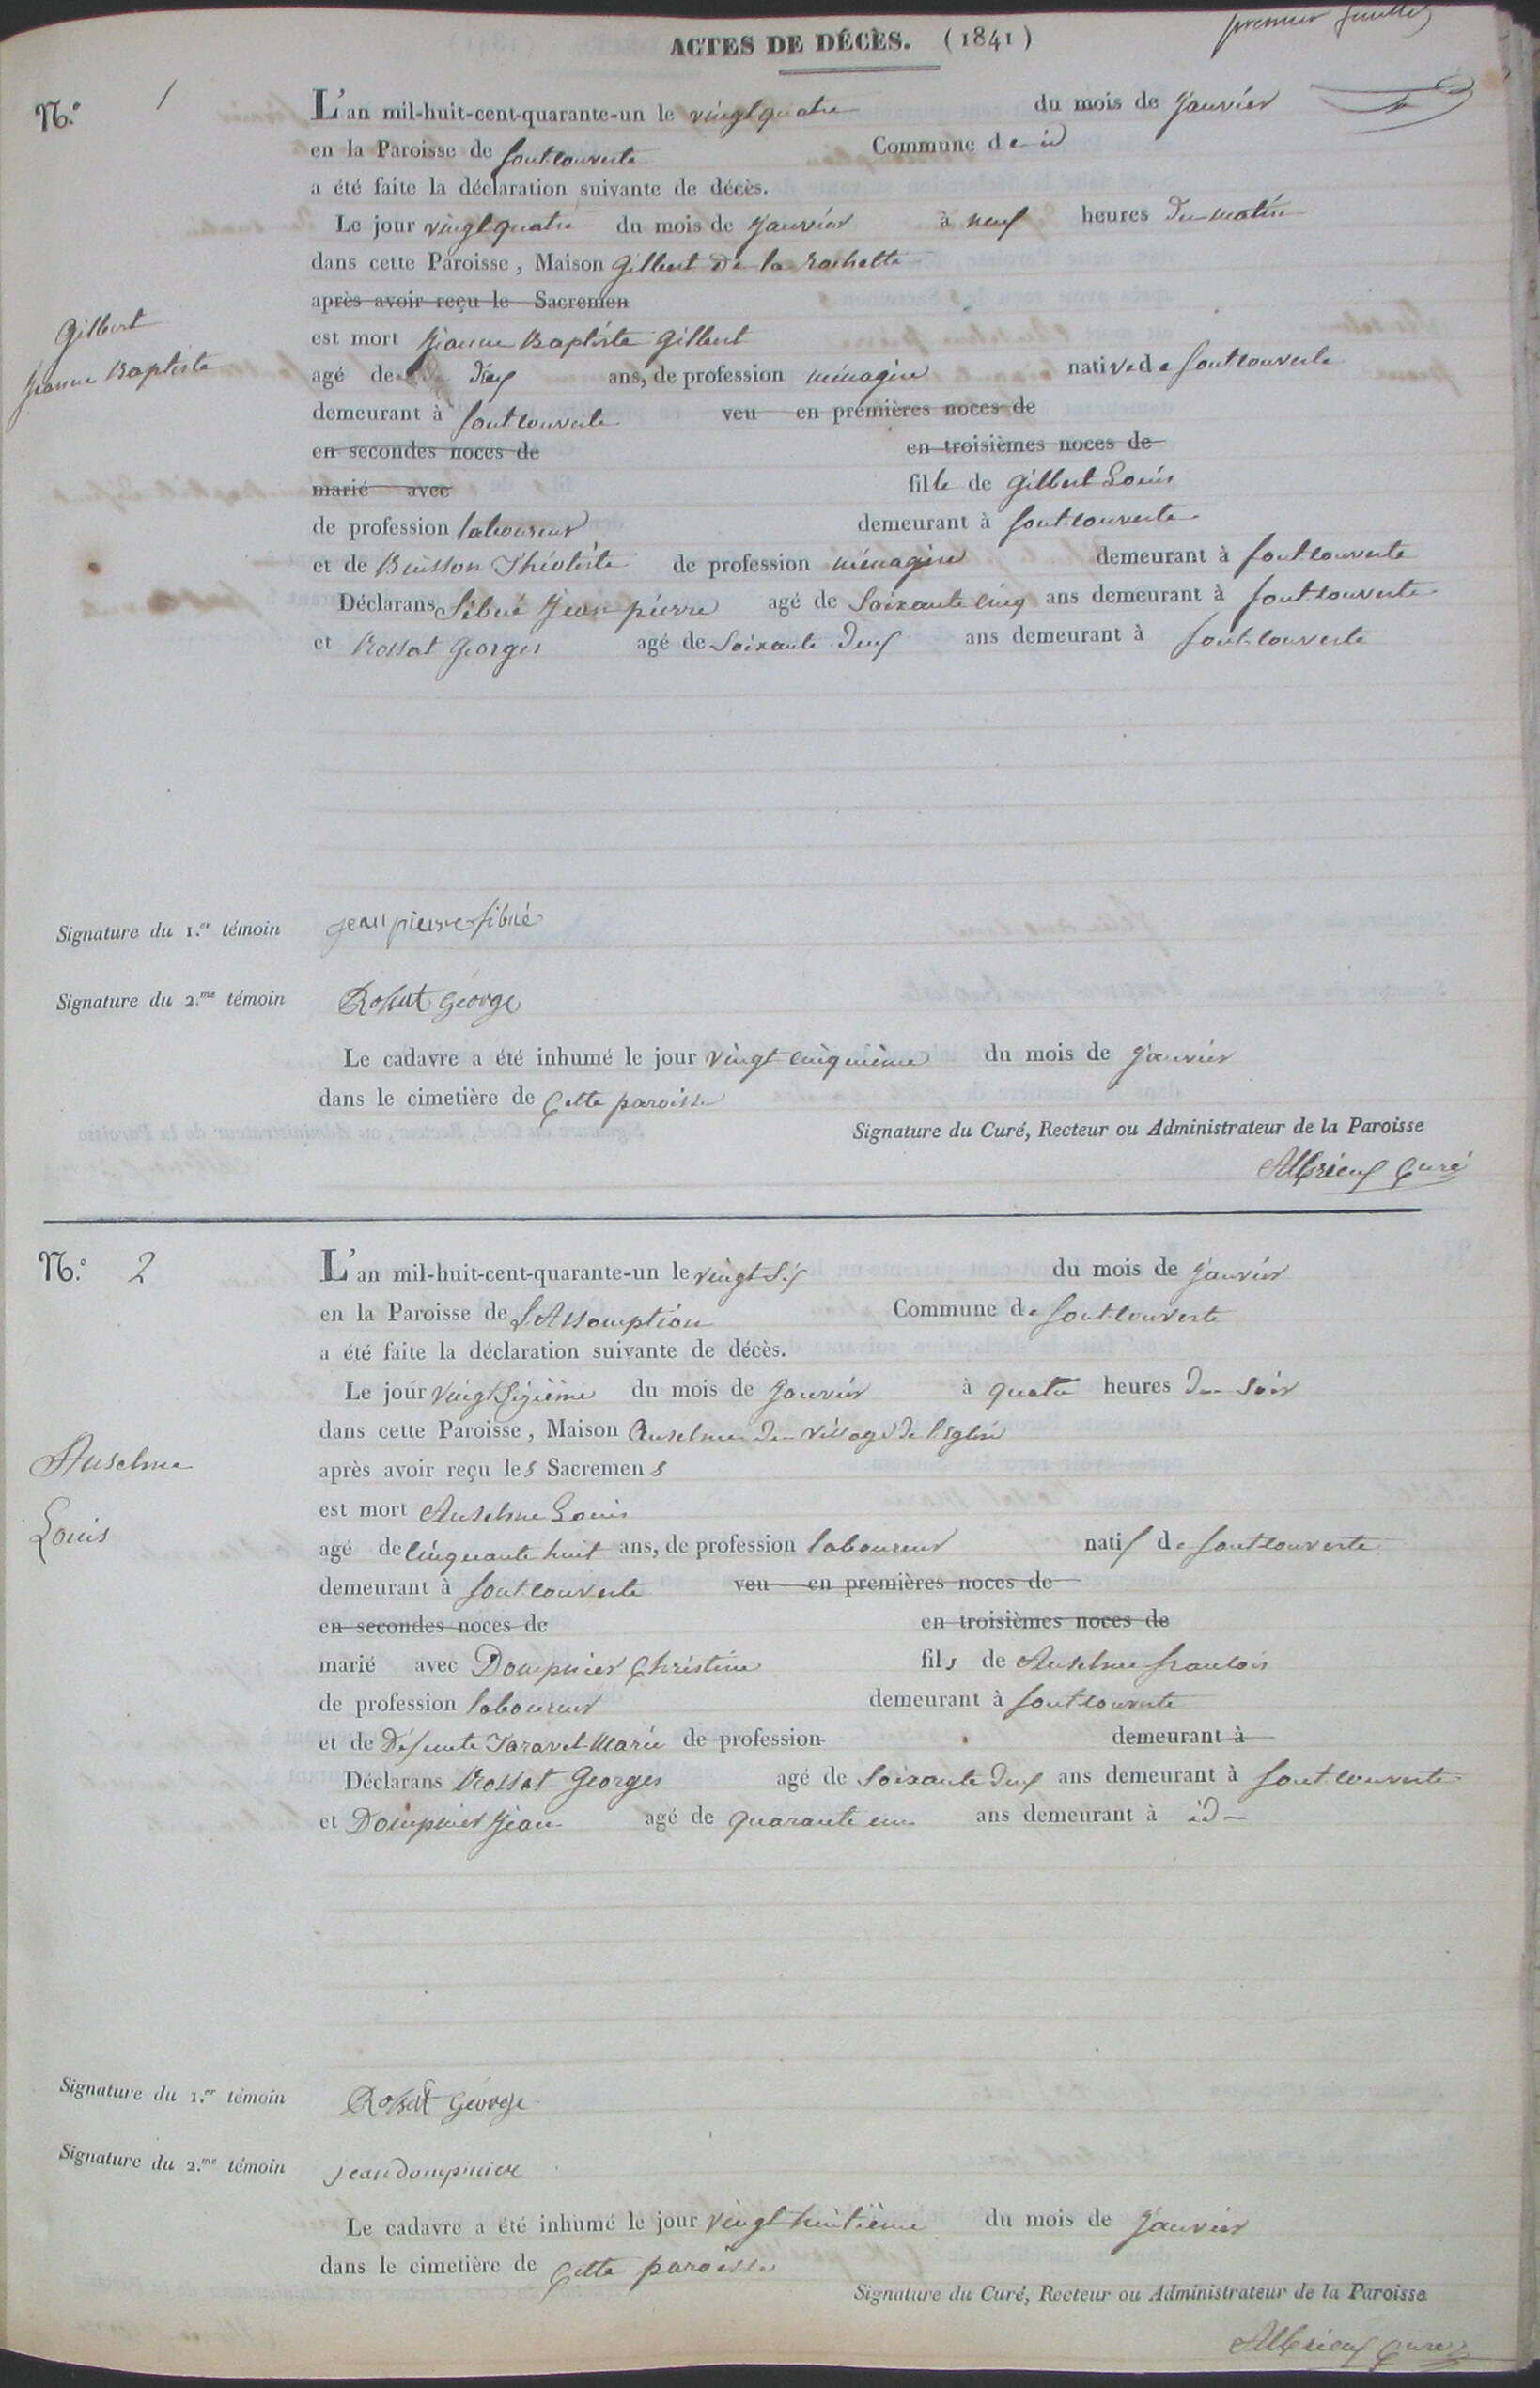 premier feuillet
ACTES DE DÉCÈS. (1841)
N.º 1
L'an mil-huit-cent-quarante-un le vingt quatre du mois de janvier
en la Paroisse de fontcouverte Commune de id
a été faite la déclaration suivante de décès.
Le jour vingt quatre du mois de janvier à neuf heures du matin
dans cette Paroisse, Maison Gilbert de la rochette
après avoir reçu le Sacremen
est mort Jeanne Baptiste Gilbert
Gilbert
Jeanne Baptiste
agé de dix ans, de profession ménagère native de fontcouverte
demeurant à fontcouverte veu en premières noces de
en secondes noces de en troisièmes noces de
marié avec fille de Gilbert Louis
de profession laboureur demeurant à fontcouverte
et de Buisson Théotiste de profession ménagère demeurant à fontcouverte
Déclarans Sibué Jean pierre agé de Soixante cinq ans demeurant à fontcouverte
et Rossat Georges agé de Soixante deux ans demeurant à fontcouverte
Signature du 1.er témoin jean pierre sibué
Signature du 2.me témoin Rossat george
Le cadavre a été inhumé le jour vingt cinquième du mois de janvier
dans le cimetière de cette paroisse
Signature du Curé, Recteur ou Administrateur de la Paroisse
Albrieux curé
N.º 2
L'an mil-huit-cent-quarante-un le vingt six du mois de janvier
en la Paroisse de L'Assomption Commune de fontcouverte
a été faite la déclaration suivante de décès.
Le jour vingt sixième du mois de janvier à quatre heures du soir
dans cette Paroisse, Maison Anselme du village de l'église
après avoir reçu les Sacremens
est mort Anselme Louis
Anselme
Louis
agé de cinquante huit ans, de profession laboureur natif de fontcouverte
demeurant à fontcouverte veu en premières noces de
en secondes noces de en troisièmes noces de
marié avec Dompnier Christine fils de Anselme francois
de profession laboureur demeurant à fontcouverte
et de défunte Taravel Marie de profession demeurant à
Déclarans Rossat Georges agé de Soixante deux ans demeurant à fontcouverte
et Dompnier Jean agé de quarante un ans demeurant à id
Signature du 1.er témoin Rossat george
Signature du 2.me témoin jean dompnier
Le cadavre a été inhumé le jour vingt huitième du mois de janvier
dans le cimetière de cette paroisse
Signature du Curé, Recteur ou Administrateur de la Paroisse
Albrieux curé